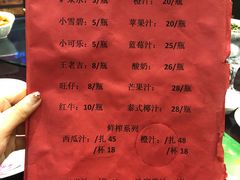 橙汁: 20/瓶
小雪碧: 5/瓶 苹果汁: 20/瓶
小可乐: 5/瓶 蓝莓汁: 25/瓶
王老吉: 8/瓶 酸奶: 26/瓶
旺仔: 8/瓶 芒果汁: 28/瓶
红牛: 10/瓶 泰式椰汁: 28/瓶
鲜榨系列
西瓜汁: /扎 45 橙汁: /扎 48
/杯 18 /杯 18